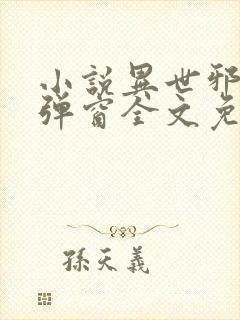 小說異世邪
彈窗全文免
孫天義